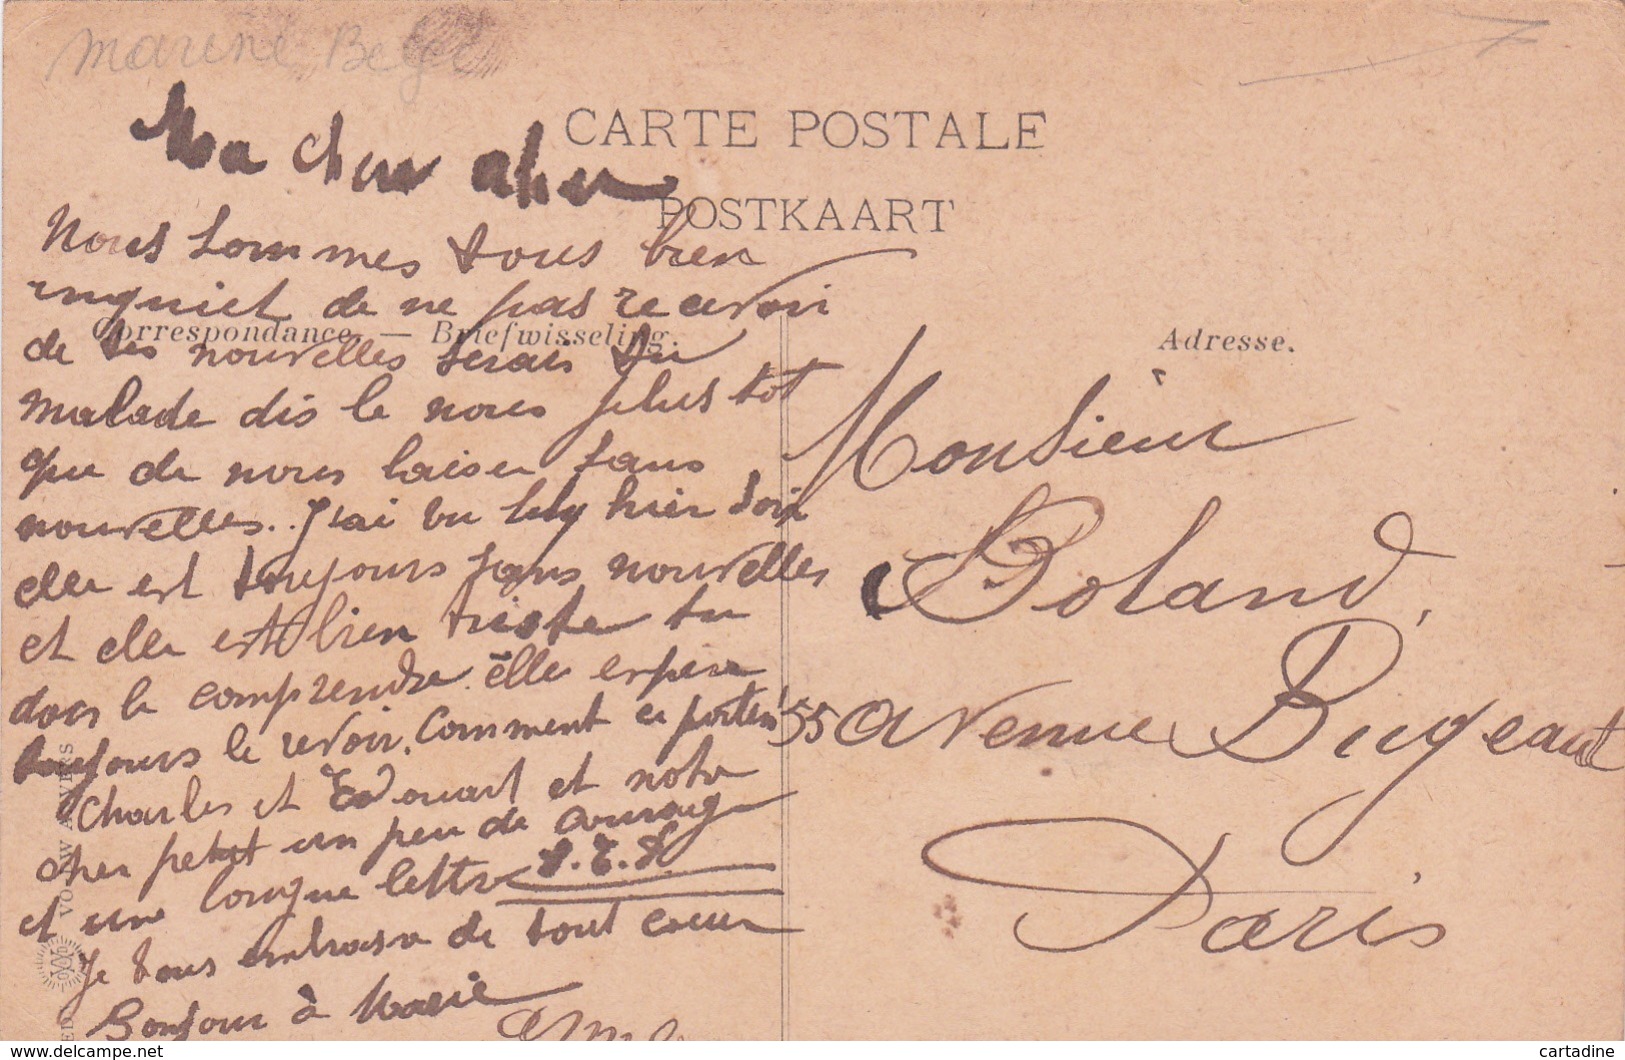 Marine Belge
CARTE POSTALE
POSTKAART
Ma cher
Nous sommes tous bien
inquiet de ne pas recevoir
Correspondance. — Briefwisseling.
de tes nouvelles serais tu
malade dis le nous plus tot
que de nous laiser sans
nouvelles. J'ai vu Lily hier soir
elle est toujours sans nouvelles
et elle est bien triste tu
dois le comprendre. elle espere
toujours le revoir. Comment ce porten
Charles et Edouart et notre
cher petit un peu de courage
et une longue lettre S.T.P.
Je vous embrasse de tout coeur
Bonjour à Marie
Adresse.
Monsieur
Boland,
55 Avenue Bugeaut
Paris
cartadine